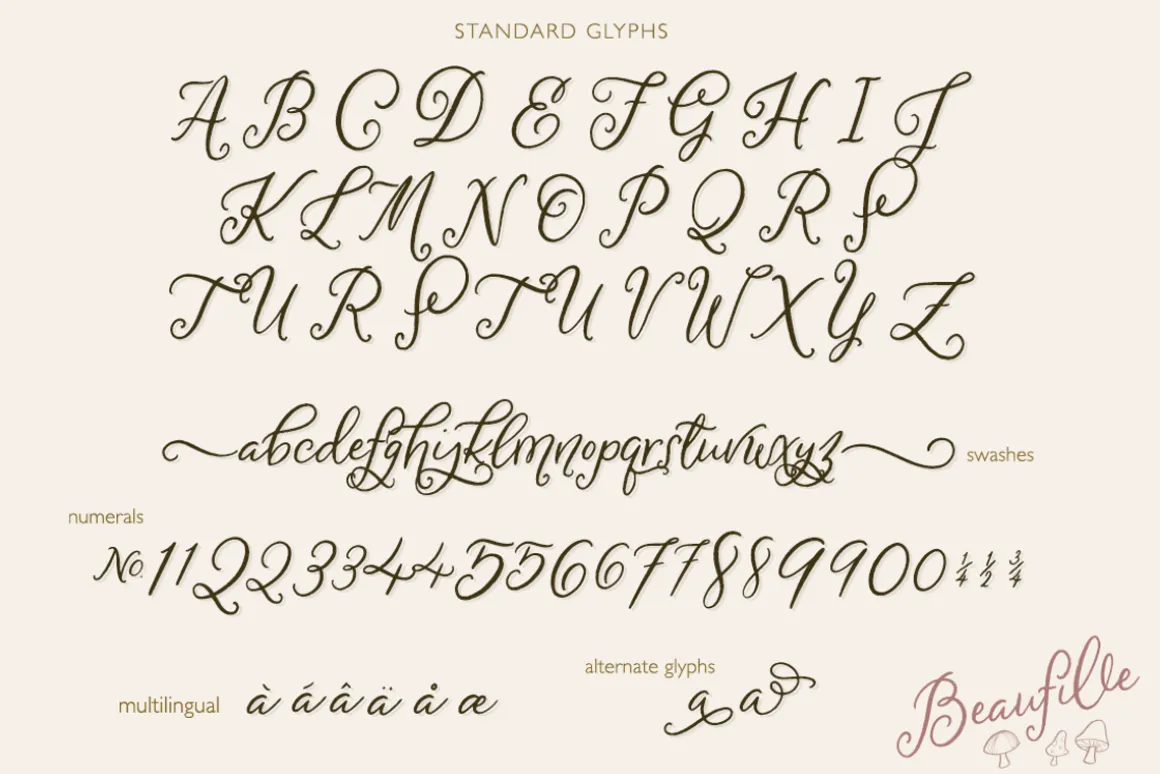 STANDARD GLYPHS
A B C D E F G H I J
K L M N O P Q R S
T U R S T U V W X Y Z
abcdefghijklmnopqrstuvwxyz
swashes
numerals
No. 11223344556677889900 ¼ ½ ¾
alternate glyphs
multilingual à á â ä å æ
a a
Beaufille